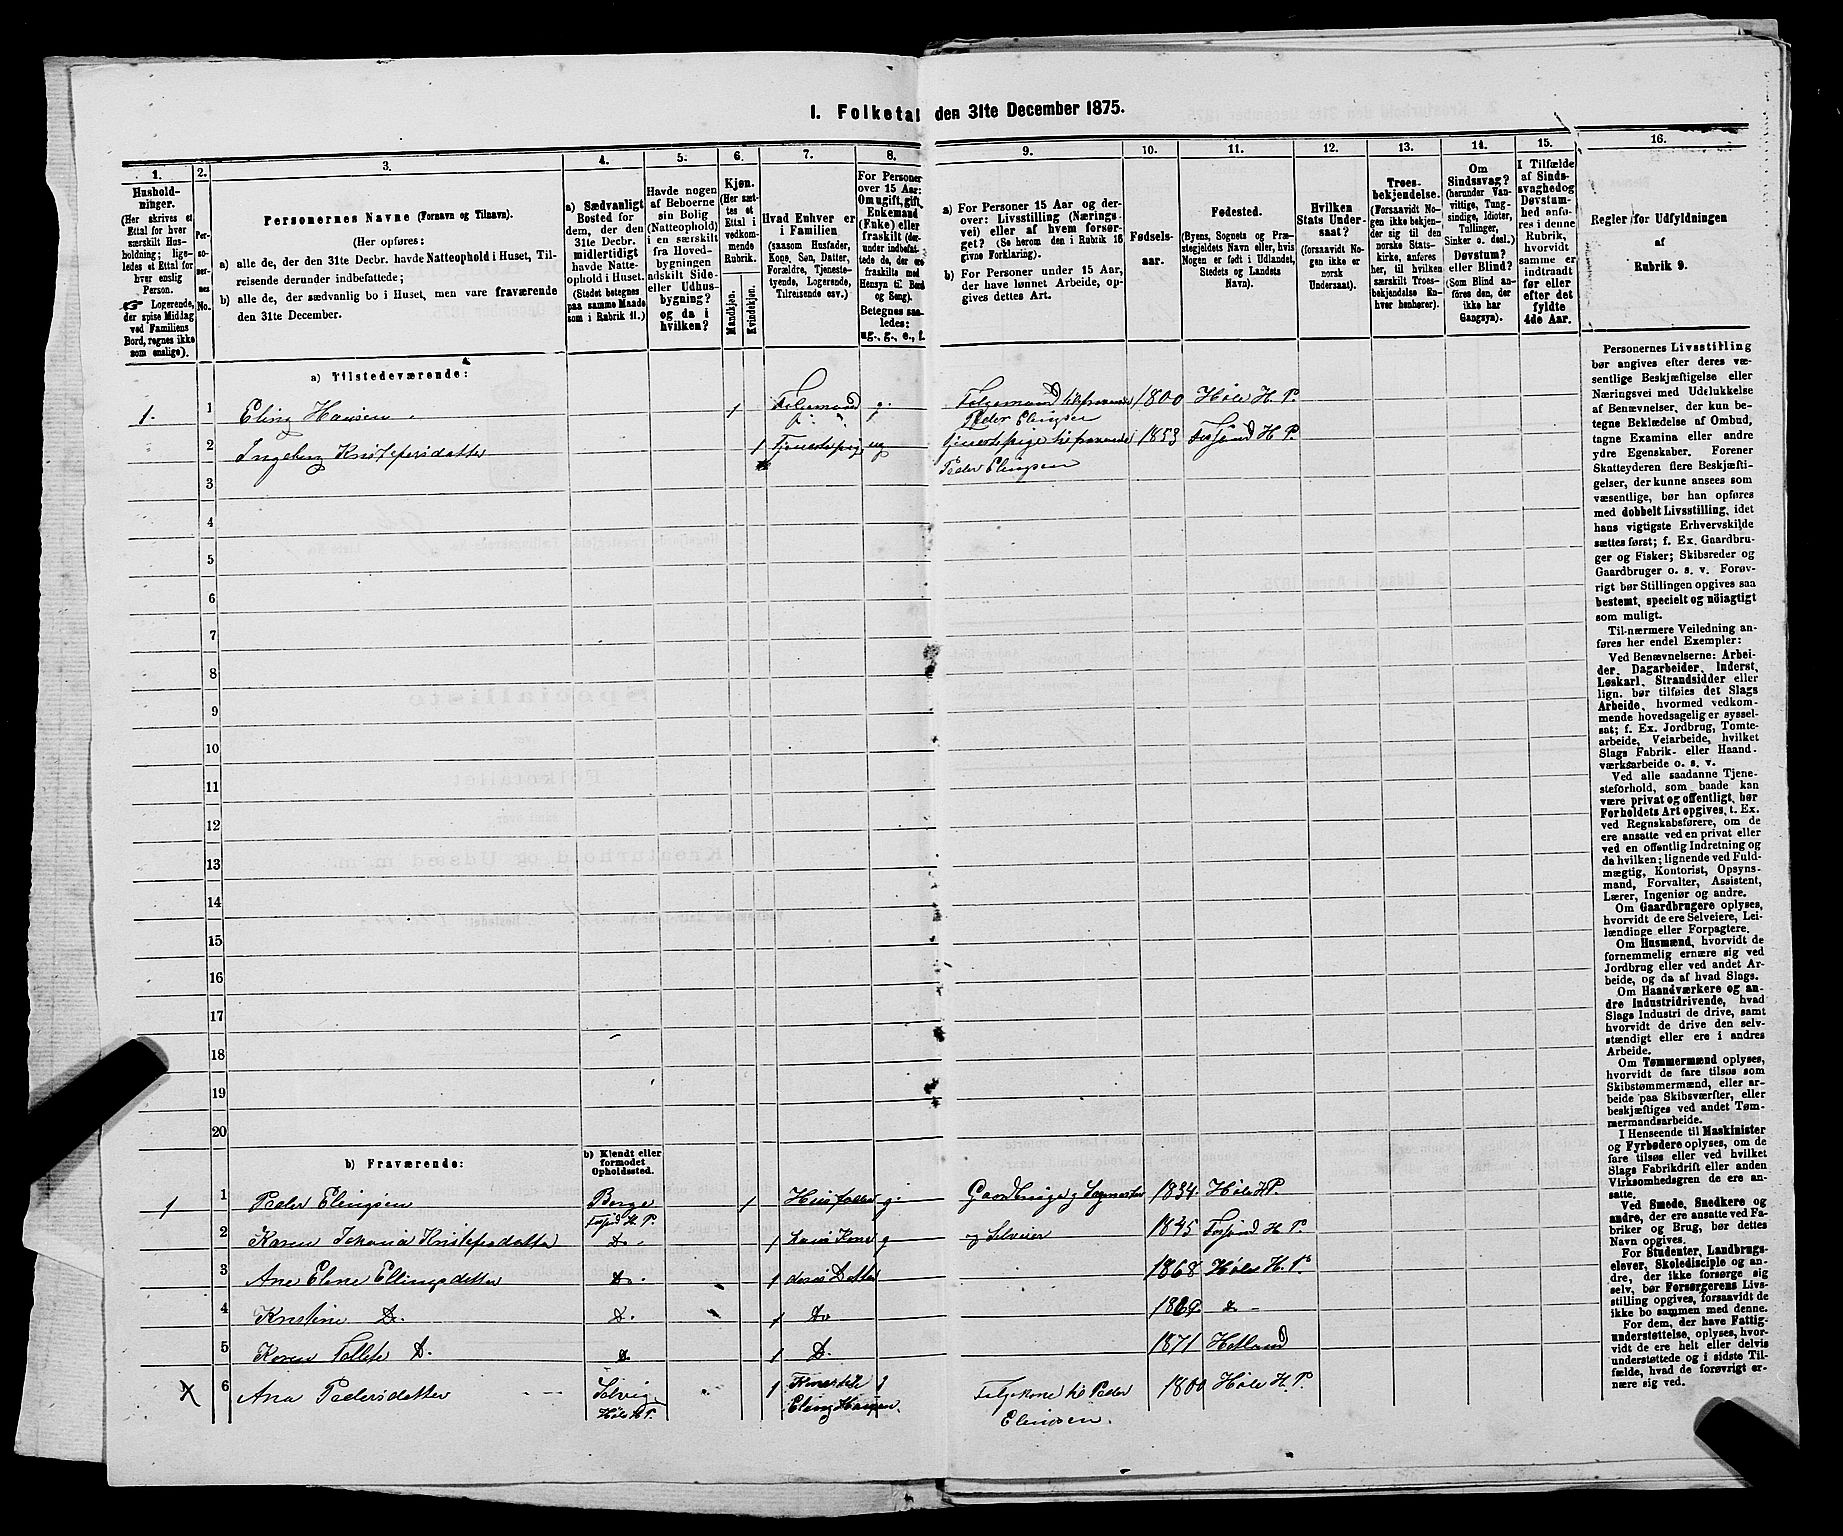 1. Folketal den 31te December 1875.
1.
2.
3.
4.
5.
6.
7.
8.
9.
10.
11.
12.
13.
14.
15.
16.
Hushold-
ninger.
(Her skrives et
Ettal for hver
særskilt Hus-
holdning; lige-
ledes et Ettal for
hver enslig
Person.
☞ Logerende,
der spise Middag
ved Familiens
Bord, regnes ikke
som enslige).
Per-
soner-
nes
No.
Personernes Navne (Fornavn og Tilnavn).
(Her opføres:
a) alle de, der den 31te Decbr. havde Natteophold i Huset, Til-
reisende derunder indbefattede;
b) alle de, der sædvanlig bo i Huset, men vare fraværende
den 31te December.
a) Sædvanligt
Bosted for
dem, der den
31te Decbr.
midlertidigt
havde Natte-
ophold i Huset.
(Stedet betegnes
paa samme Maade
som i Rubrik 11.)
Havde nogen
af Beboerne
sin Bolig
(Natteophold)
i en særskilt
fra Hoved-
bygningen
adskilt Side-
eller Udhus-
bygning?
og da i
hvilken?
Kjøn.
(Her sæt-
tes et
Ettal i
vedkom-
mende
Rubrik.
Mandkjøn.
Kvindekjøn.
Hvad Enhver er
i Familien
(saasom Husfader,
Kone, Søn, Datter,
Forældre, Tjeneste-
tyende, Logerende,
Tilreisende osv.)
For Personer
over 15 Aar:
Om ugift, gift,
Enkemand
(Enke) eller
fraskilt (der-
under indbefat-
tede de, der ere
fraskilte med
Hensyn til Bord
og Seng).
Betegnes saa-
ledes:
ug., g., e., f.
a) For Personer 15 Aar og der-
over: Livsstilling (Nærings-
vei) eller af hvem forsør-
get? (Se herom den i Rubrik 16
givne Forklaring).
b) For Personer under 15 Aar,
der have lønnet Arbeide, op-
gives dettes Art.
Fødsels-
aar.
Fødested.
(Byens, Sognets og Præ-
stegjeldets Navn eller, hvis
Nogen er født i Udlandet,
Stedets og Landets
Navn).
Hvilken
Stats Under-
saat?
(forsaavidt No-
gen ikke er
norsk
Undersaat).
Troes-
bekjendelse.
(Forsaavidt No-
gen ikke bekjen-
der sig til den
norske Stats-
kirke, anføres
her, til hvilken
særskilt Troes-
bekjendelse En-
hver henhører).
Om
Sindssvag?
(herunder Van-
vittige, Tung-
sindige, Idioter,
Tullinger,
Sinker o. desl.)
Døvstum?
eller Blind?
(Som Blind an-
føres den, der
ikke har
Gangsyn).
I Tilfælde
af Sinds-
svaghed og
Døvstum-
hed anfø-
res i denne
Rubrik,
hvorvidt
samme er
indtraadt
før eller
efter det
fyldte
4de Aar.
Regler for Udfyldningen
af
Rubrik 9.
a) Tilstedeværende:
1. 1 Eling Hansen 1 Folgemand g. Folgemand til fraværende 1800 Høle H. P.
Peder Elingsen
2 Ingeborg Kristofersdatter 1 Tjenestepige ug Tjenestepige til fraværende 1853 Fosand H P.
Peder Elingsen
3
4
5
6
7
8
9
10
11
12
13
14
15
16
17
18
19
20
b) Fraværende:
b) Kjendt eller
formodet
Opholdssted.
1 1 Peder Elingsen Borge 1 Husfader g. Gaardbruger 1834. Høle H P.
H. P.
2 Karen Johana 1 hans Kone g og Selveier 1845 H P.
3 Ane Elene Ellingsdatter Do. 1 deres Datter 1868 Høle H. P.
4 Kristine Do. Do. 1 Do 1869 do
5 Karen Do. Do 1 Do. 1871 Hetland
X 6 Ana Pedersdatter Selvig 1 Kone til g Folgekone til Peder 1800 Høle H. P.
Høle H P. Eling Hansen. Elingsen.
Personernes Livsstilling
bør angives efter deres væ-
sentlige Beskjæftigelse eller
Næringsvei med Udelukkelse
af Benævnelser, der kun be-
tegne Beklædelse af Ombud,
tagne Examina eller andre
ydre Egenskaber. Forener
Skatteyderen flere Beskjæfti-
gelser, der kunne ansees som
væsentlige, bør han opføres
med dobbelt Livsstilling, idet
hans vigtigste Erhvervskilde
sættes først; f. Ex. Gaardbru-
ger og Fisker; Skibsreder og
Gaardbruger o. s. v. Forøv-
rigt bør Stillingen opgives saa
bestemt, specielt og nöiagtigt
som muligt.
Til nærmere Veiledning an-
føres her endel Exempler:
Ved Benævnelserne: Arbei-
der, Dagarbeider, Inderst,
Løskarl, Strandsidder eller
lign. bør tilføies det Slags
Arbeide, hvormed vedkom-
mende hovedsagelig er syssel-
sat; f. Ex. Jordbrug, Tomte-
arbeide, Veiarbeide, hvilket
Slags Fabrik- eller Haand-
værksarbeide o. s. v.
Ved alle saadanne Tjene-
steforhold, som baade kan
være privat og offentligt, bør
Forholdets Art opgives, t. Ex.
ved Regnskabsførere, om de
ere ansatte ved en privat eller
ved en offentlig Indretning og
da hvilken; lignende ved Fuld-
mægtig, Kontorist, Opsyns-
mand, Forvalter, Assistent,
Lærer, Ingeniør og andre.
Om Gaardbrugere oplyses,
hvorvidt de ere Selveiere, Lei-
lændinge eller Forpagtere.
Om Husmænd, hvorvidt de
fornemmelig ernære sig ved
Jordbrug eller ved andet Ar-
beide, og da af hvad Slags.
Om Haandværkere og an-
dre Industridrivende, hvad
Slags Industri de drive, samt
hvorvidt de drive den selv-
stændigt eller ere i andres
Arbeide.
Om Tømmermænd oplyses,
hvorvidt de fare tilsøs som
Skibstømmermænd, eller ar-
beide paa Skibsværfter, eller
beskjæftiges ved andet Tøm-
mermandsarbeide.
I Henseende til Maskinister
og Fyrbødere oplyses, om de
fare tilsøs eller ved hvilket
Slags Fabrikdrift eller anden
Virksomhedsgren de ere an-
satte.
Ved Smede, Snedkere og
andre, der ere ansatte ved Fa-
briker og Brug, bør dettes
Navn opgives.
For Studenter, Landbrugs-
elever, Skoledisciple og an-
dre, der ikke forsørge sig
selv, bør Forsørgerens Livs-
stilling opgives, forsaavidt de
ikke bo sammen med denne.
For dem, der have Fattig-
understøttelse, oplyses, hvor-
vidt de ere helt eller delvis
understøttede og i sidste Til-
fælde, hvad de forøvrigt er-
nære sig ved.